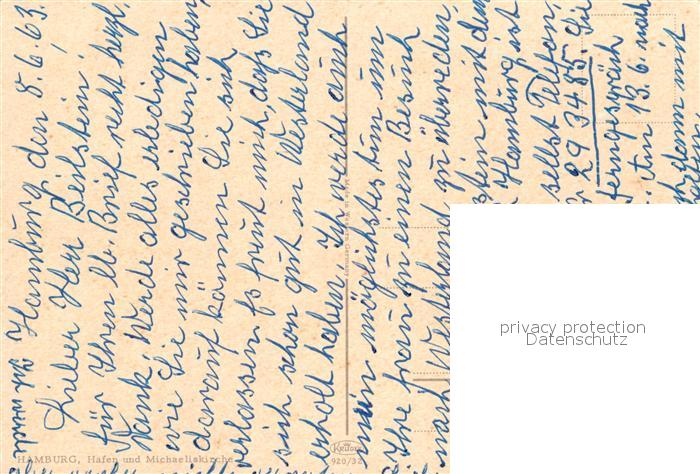 Hamburg den 8.6.63.
Lieber Herr Beilstein!
für Ihren lb. Brief recht herzl.
Dank. Werde alles erledigen
wie Sie mir geschrieben haben,
darauf können Sie sich
verlassen. Es freut mich, daß Sie
sich schon gut in Westerland
erholt haben. Ich werde auch
mein möglichstes tun um
Ihre Frau zu einen Besuch
nach Westerland zu überreden,
stein mit dem
Hamburg ist
selbst Telefon,
29 34 85 Sie
Ferngespräch
13.6. nach
dann mit
HAMBURG, Hafen und Michaeliskirche
Krüger
920/32
privacy protection
Datenschutz